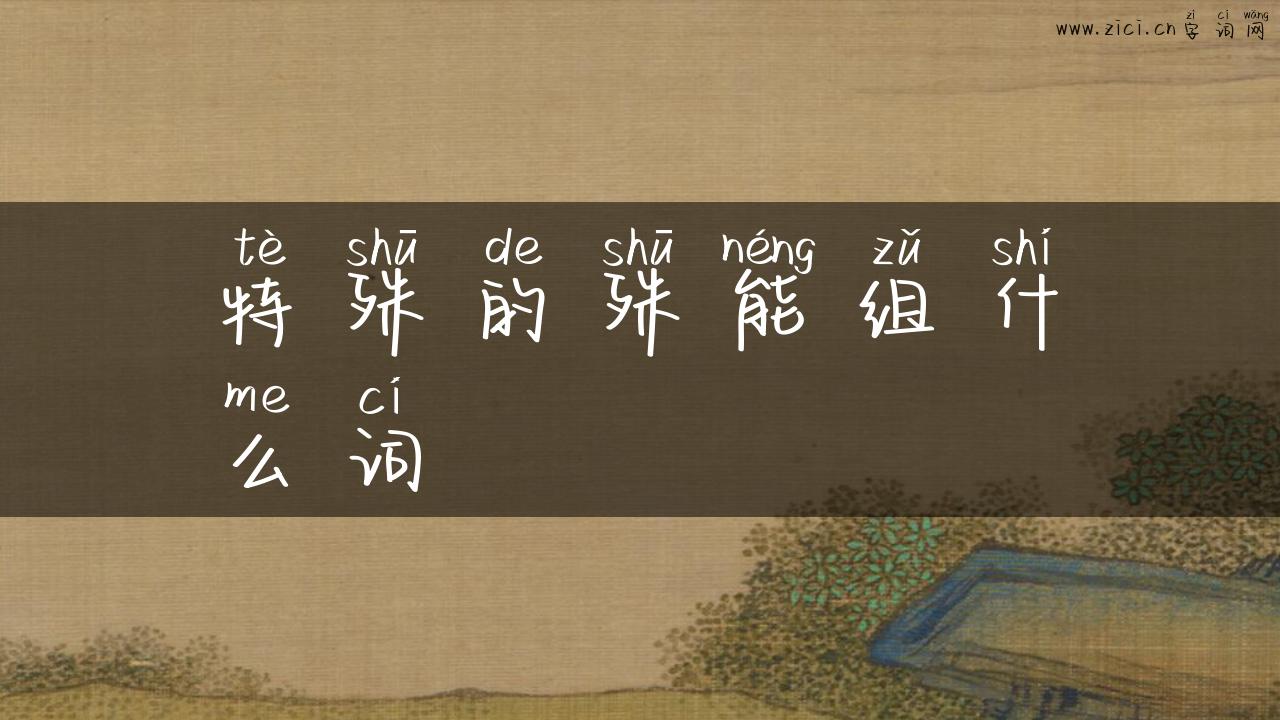 zì cí wǎng
www.zici.cn 字 词 网
tè shū de shū néng zǔ shí
特 殊 的 殊 能 组 什
me cí
么 词